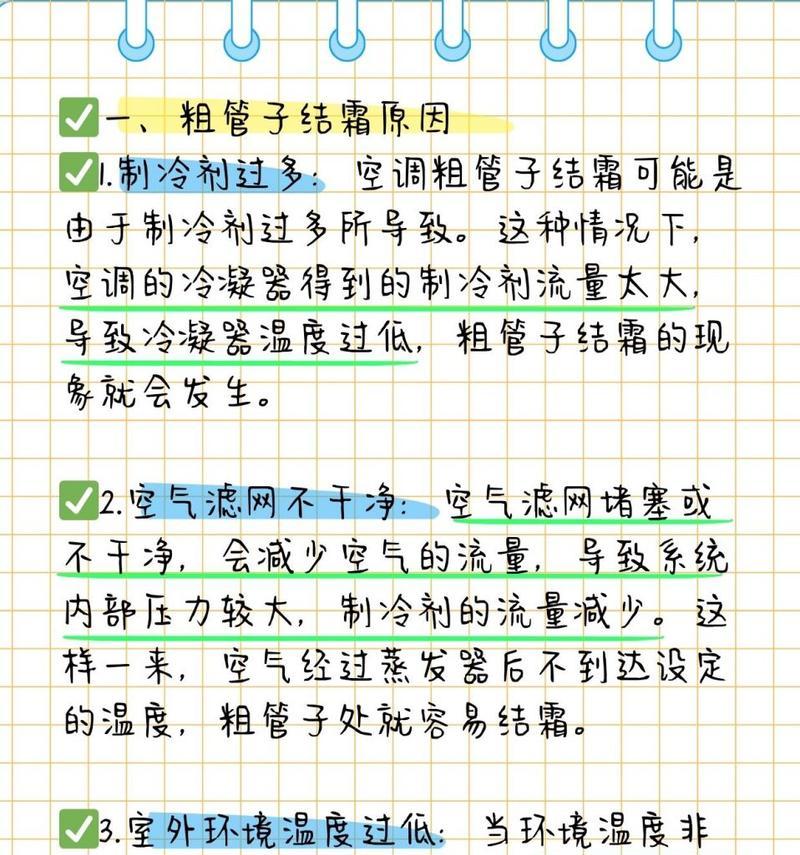 一、粗管子结霜原因
1.制冷剂过多：空调粗管子结霜可能是
由于制冷剂过多所导致。这种情况下，
空调的冷凝器得到的制冷剂流量太大，
导致冷凝器温度过低，粗管子结霜的现
象就会发生。
2.空气滤网不干净：空气滤网堵塞或
不干净，会减少空气的流量，导致系统
内部压力较大，制冷剂的流量减少。这
样一来，空气经过蒸发器后不到达设定
的温度，粗管子处就容易结霜。
3.室外环境温度过低：当环境温度非